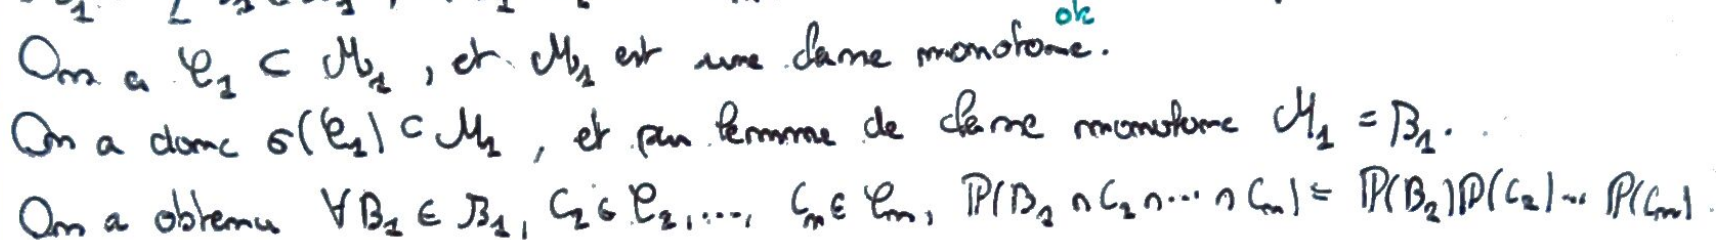 ok
On a 𝒞₁ ⊂ ℳ₁, et ℳ₁ est une classe monotone.
On a donc σ(𝒞₁) ⊂ ℳ₁, et par lemme de classe monotone ℳ₁ = ℬ₁.
On a obtenu ∀B₁ ∈ ℬ₁, C₂ ∈ 𝒞₂, ..., Cₙ ∈ 𝒞ₙ, ℙ(B₁ ∩ C₂ ∩ ... ∩ Cₙ) = ℙ(B₁)ℙ(C₂)... ℙ(Cₙ).